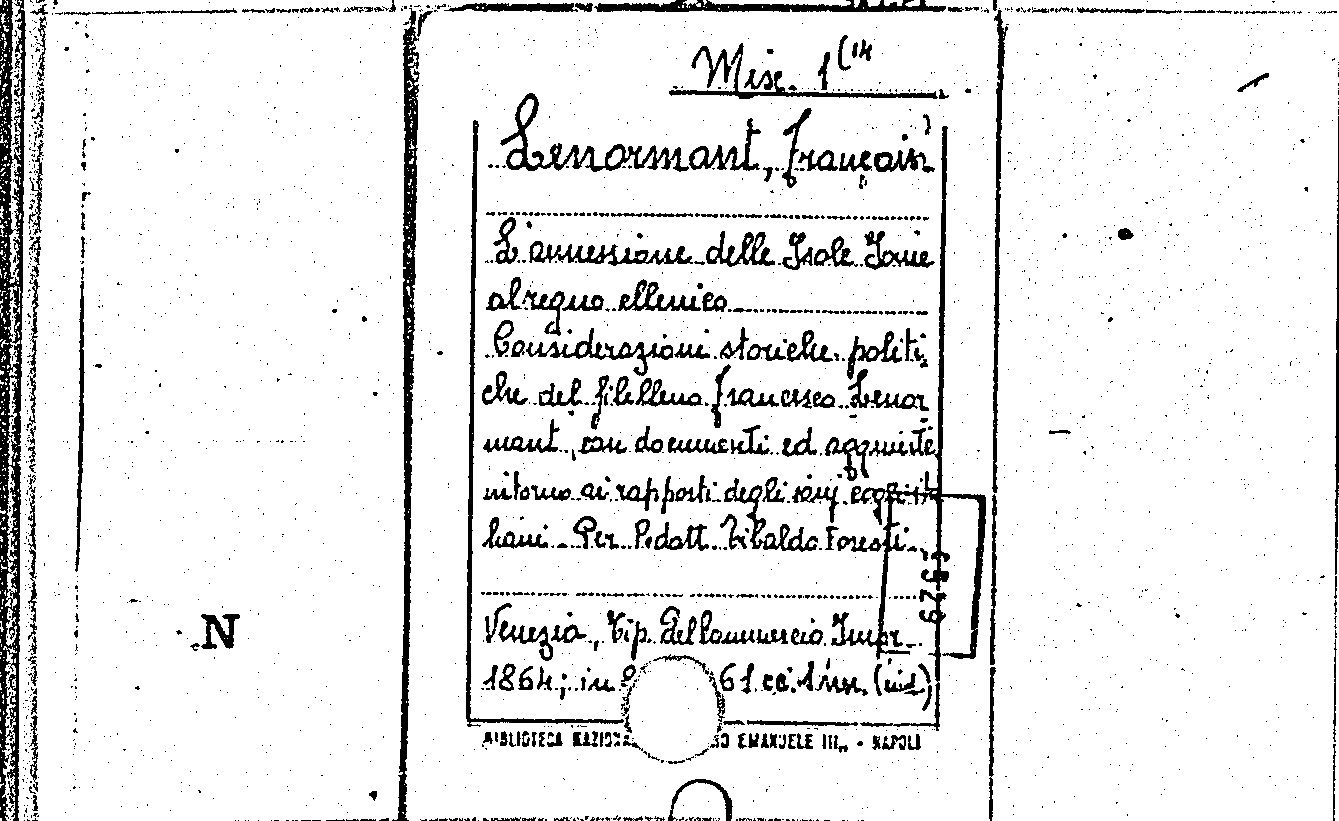 Misc. 1 (14
Lenormant, François
L'annessione delle Isole Ionie
al regno ellenico
Considerazioni storiche politi-
che del filelleno Francesco Lenor
mant, con documenti ed aggiunte
intorno ai rapporti degli ionj cogli ita
liani - Per P. dott. Tibaldo Foresti.
Venezia, Tip. del Commercio
1864; in 61 cc. 1 nn.
BIBLIOTECA EMANUELE III,, - NAPOLI
N